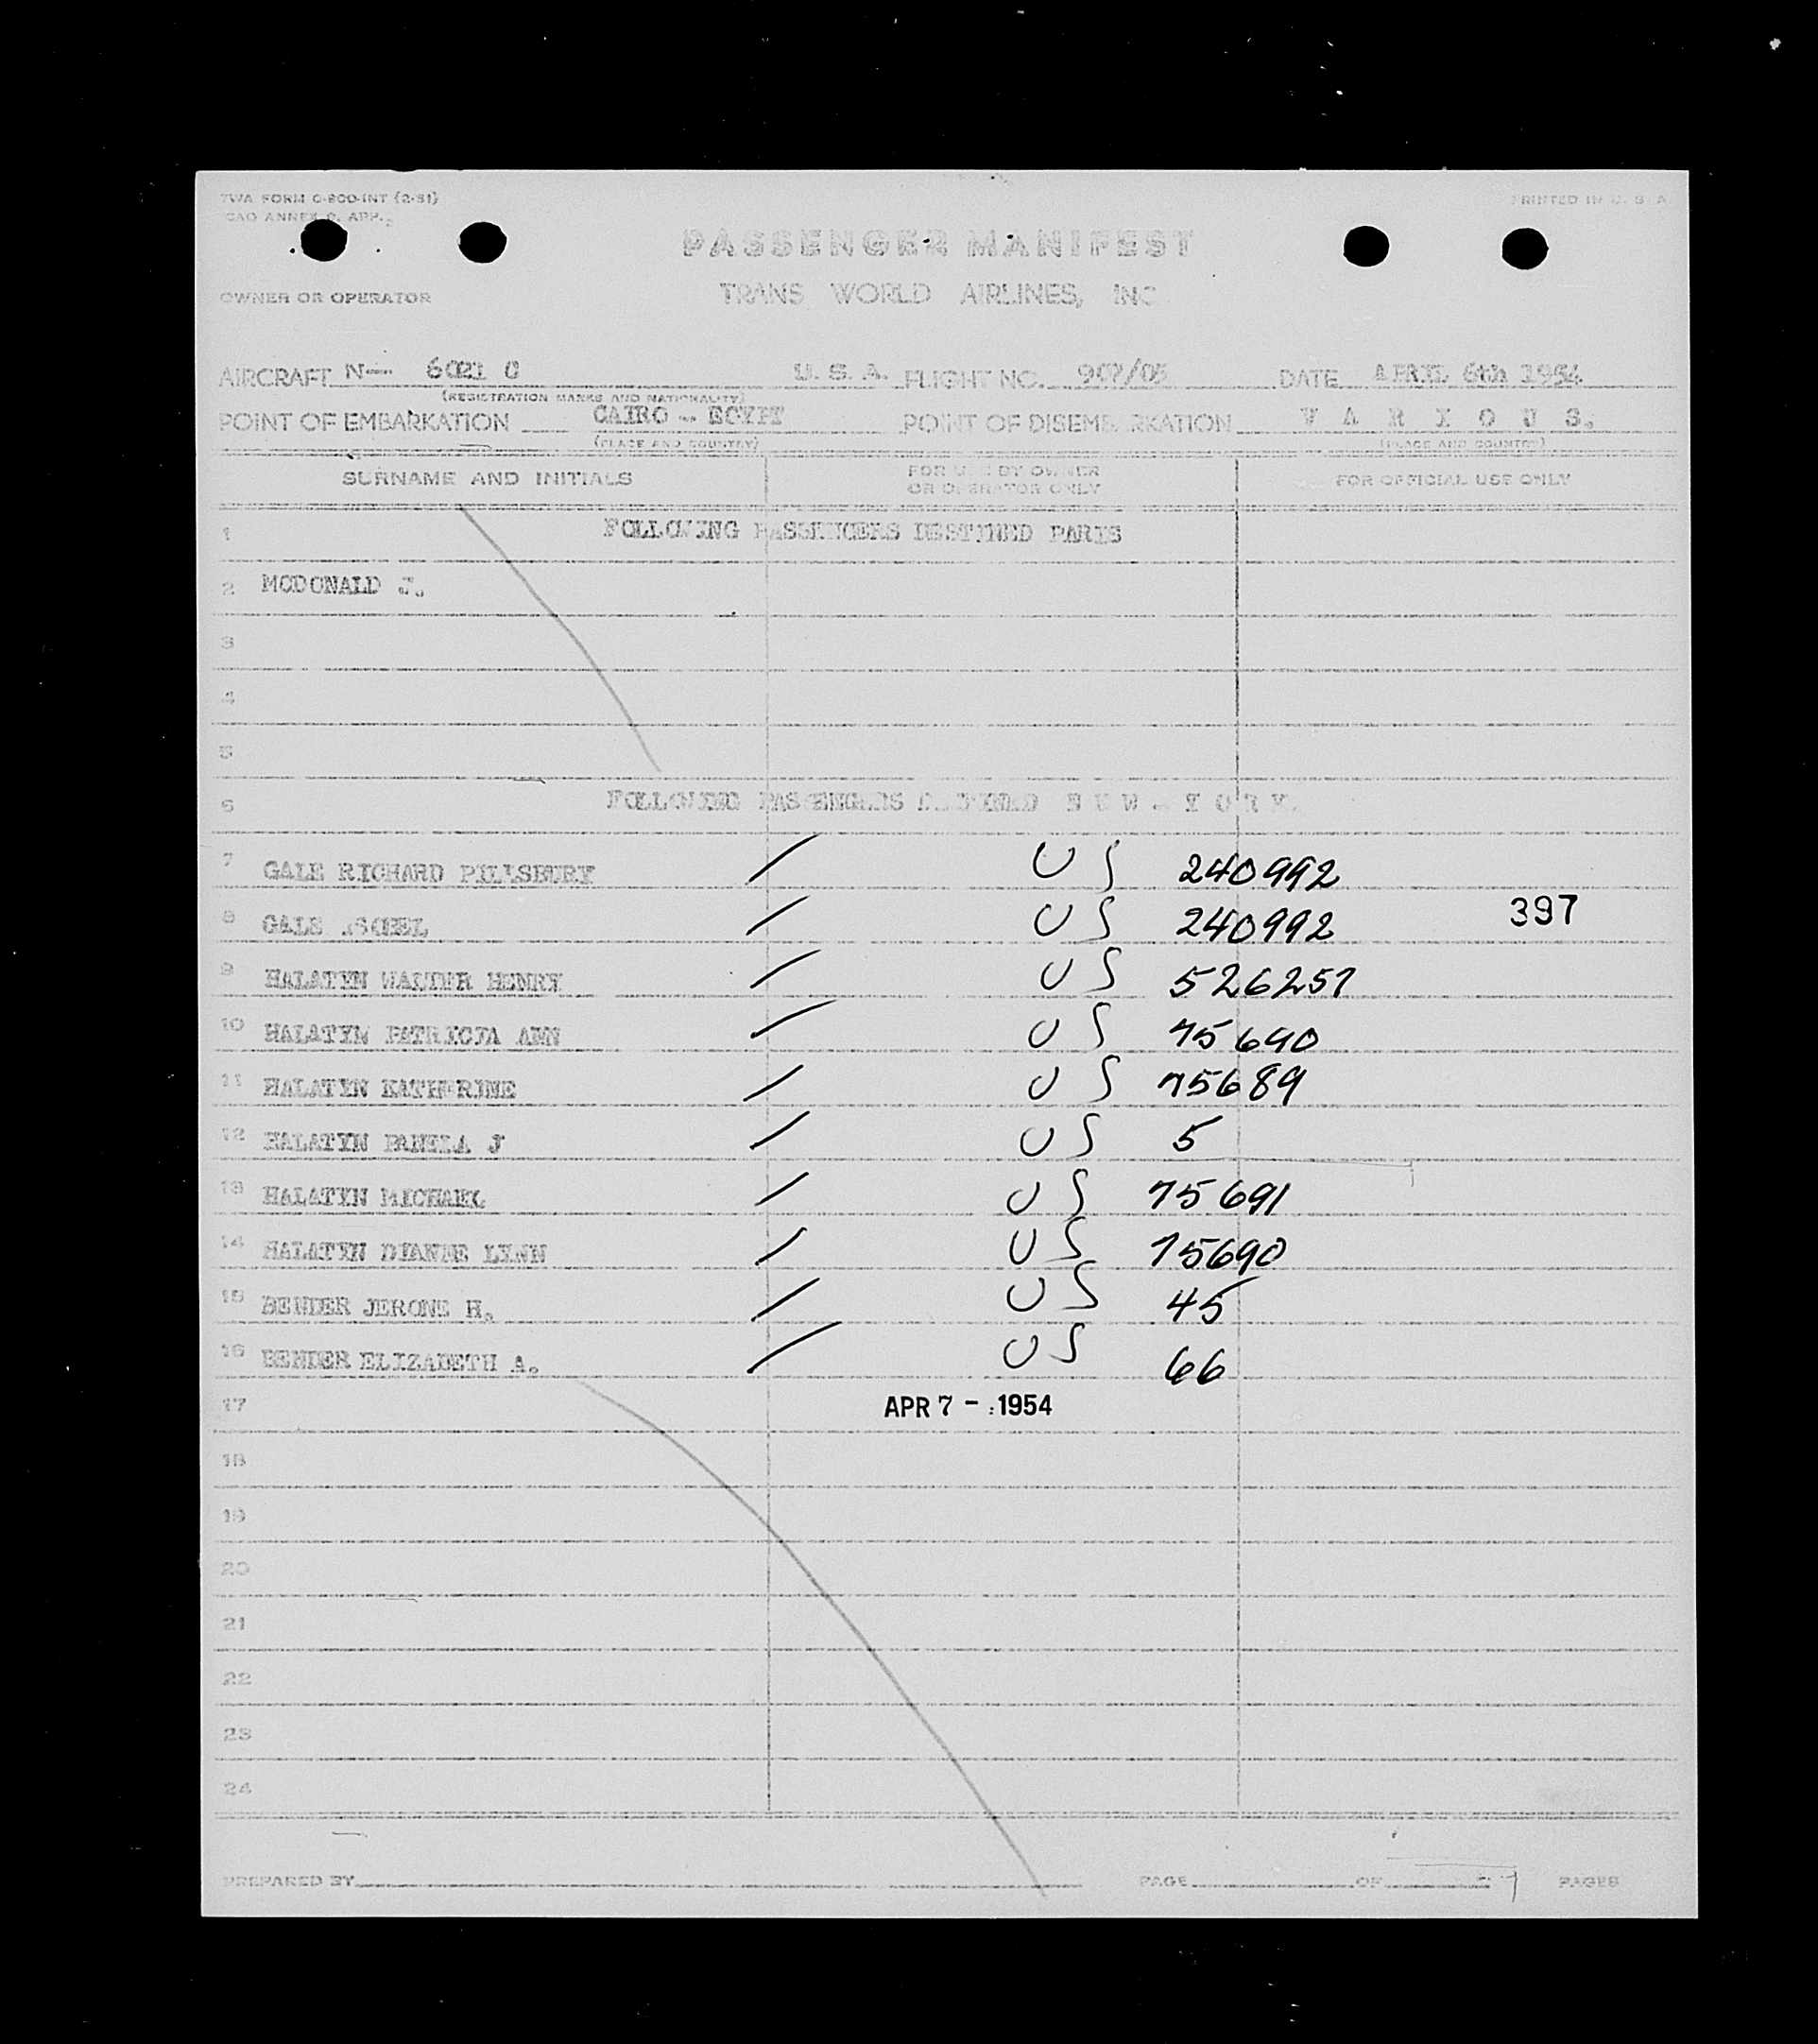 TWA FORM O-800-INT (2-51)
PRINTED IN U. S. A.
ICAO ANNEX 9, APP.
PASSENGER MANIFEST
OWNER OR OPERATOR
TRANS WORLD AIRLINES, INC
AIRCRAFT N-- 6021 C U. S. A. FLIGHT NO. 907/05 DATE APRIL 6th 1954
(REGISTRATION MARKS AND NATIONALITY)
POINT OF EMBARKATION CAIRO - EGYPT POINT OF DISEMBARKATION V A R I O U S.
(PLACE AND COUNTRY) (PLACE AND COUNTRY)
SURNAME AND INITIALS FOR USE BY OWNER OR OPERATOR ONLY FOR OFFICIAL USE ONLY
1 FOLLOWING PASSENGERS DESTINED PARIS
2 MCDONALD J.
3
4
5
6 FOLLOWING PASSENGERS DESTINED N E W - Y O R K.
7 GALE RICHARD PILLSBURY / US 240992
8 GALE / US 240992 397
9 HALATYN WALTER HENRY / US 526257
10 HALATYN PATRICIA ANN / US 75690
11 HALATYN KATHERINE / US 75689
12 HALATYN PAMELA J / US 5
13 HALATYN MICHAEL / US 75691
14 HALATYN DIANNE LYNN / US 75690
15 BENDER JEROME H. / US 45
16 BENDER ELIZABETH A. / US 66
17 APR 7 - 1954
18
19
20
21
22
23
24
PREPARED BY PAGE OF PAGES